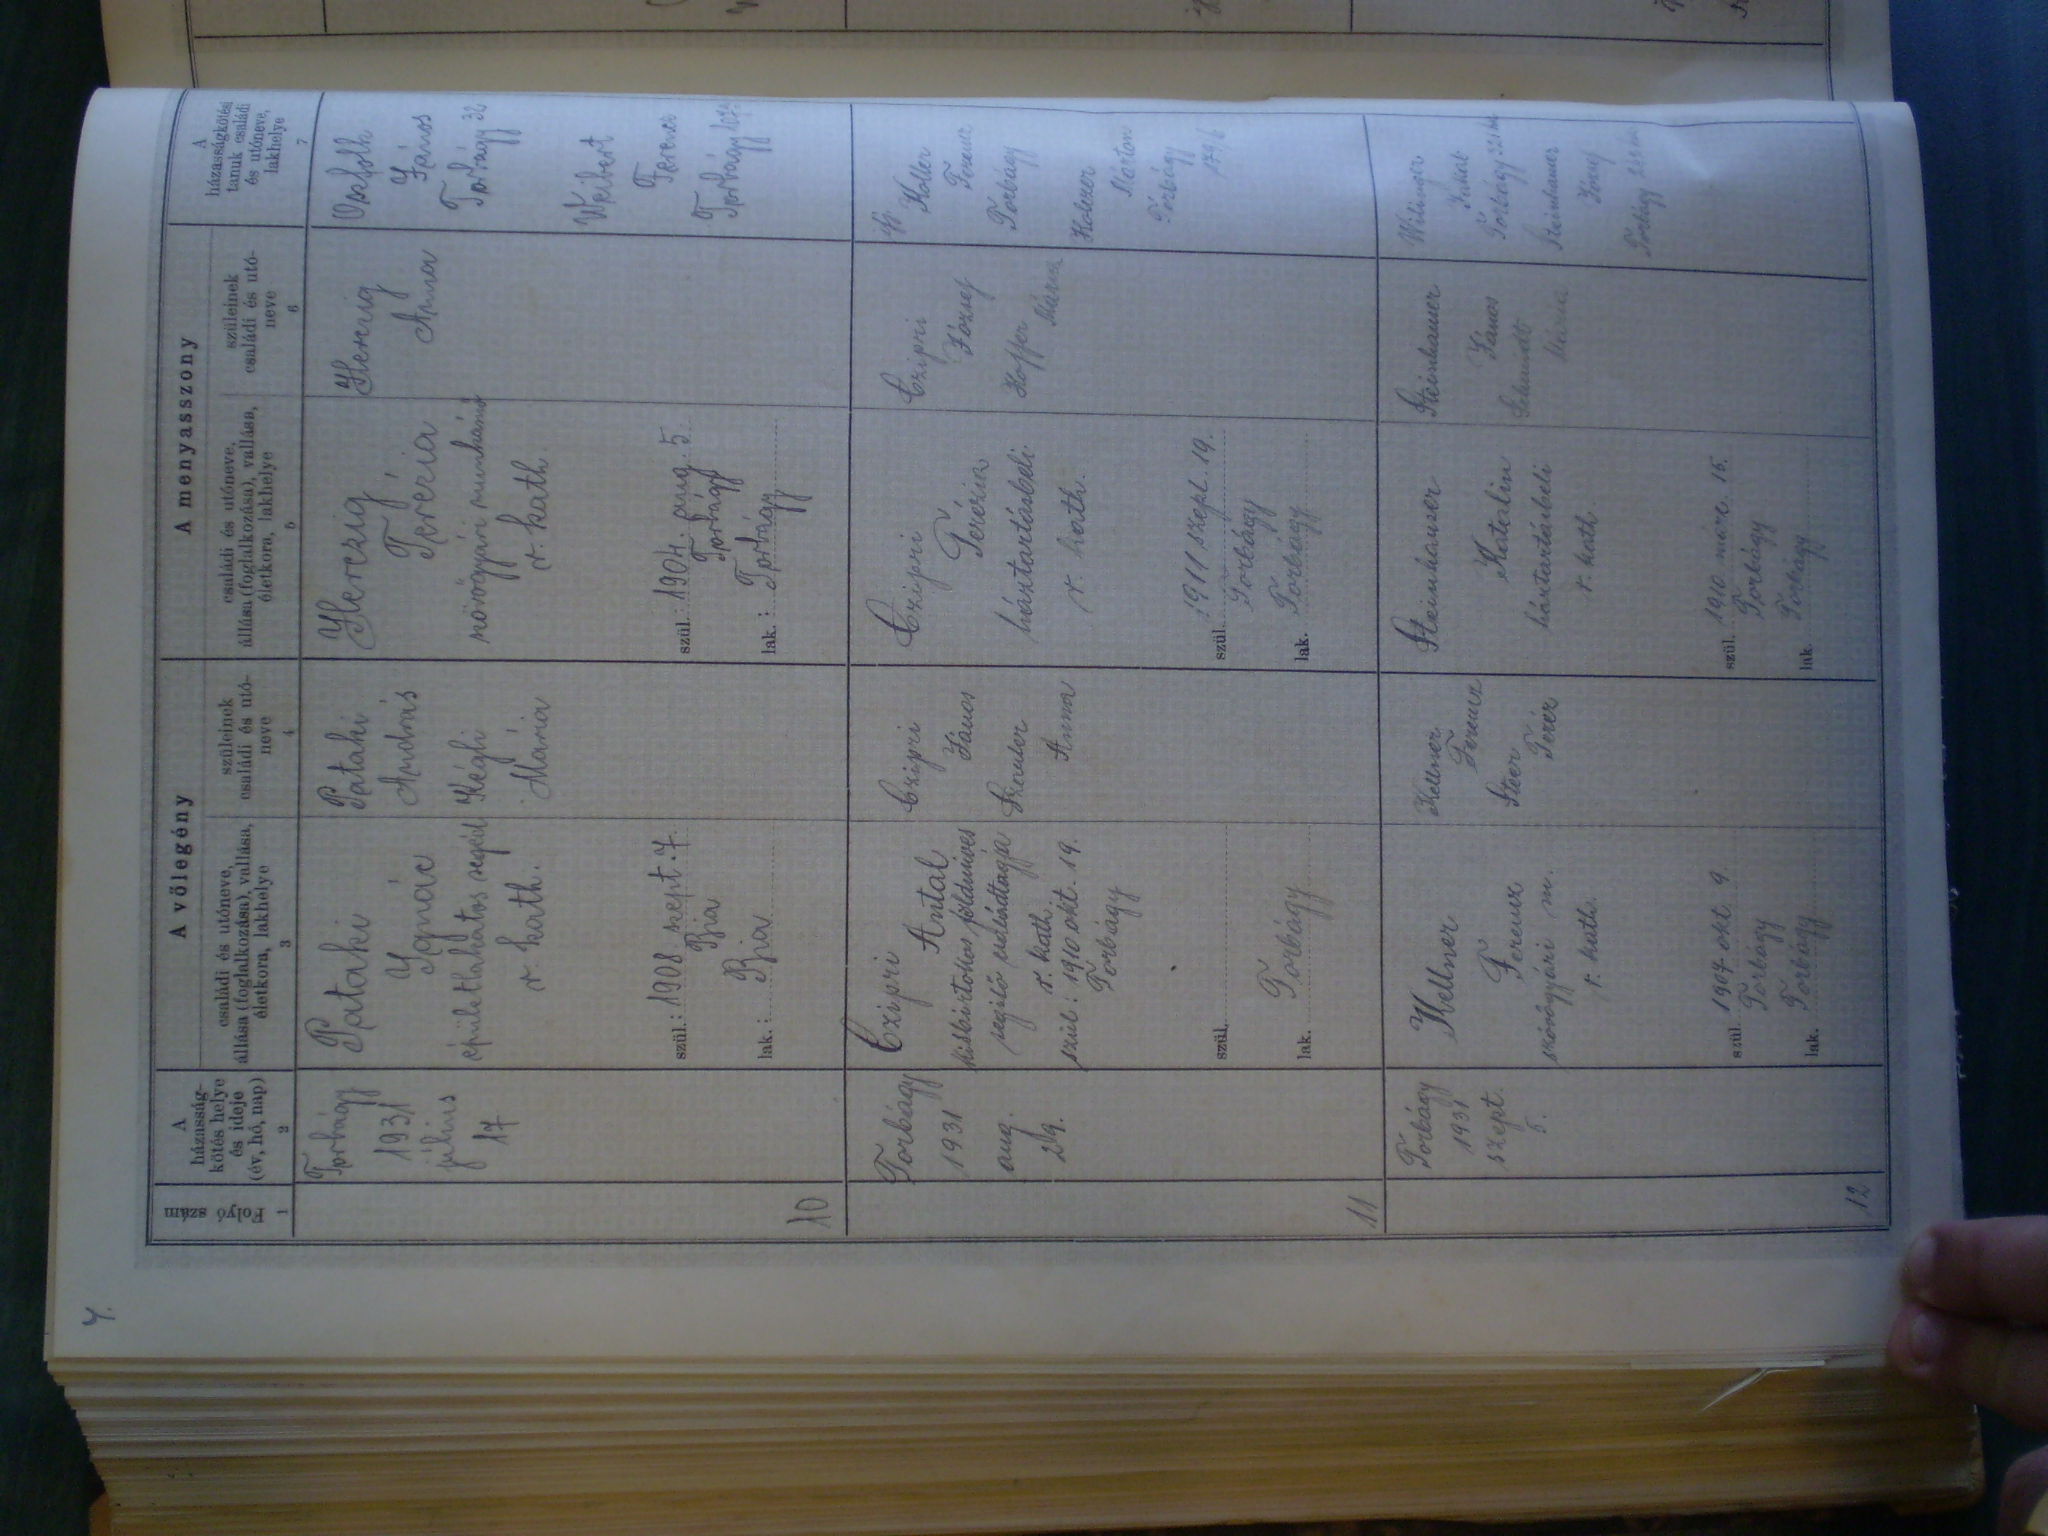 4.
A völegény
A menyasszony
Folyó szám
1
A
házasság-
kötés helye
és ideje
(év, hó, nap)
2
családi és utóneve,
állása (foglalkozása), vallása,
életkora, lakhelye
3
szüleinek
családi és utó-
neve
4
családi és utóneve,
állása (foglalkozása), vallása,
életkora, lakhelye
5
szüleinek
családi és utó-
neve
6
A
házasságkötési
tanuk családi
és utóneve,
lakhelye
7
10
Torbágy
1931
július
17
Pataki
Ignác
épületlakatos segéd
r. kath.
szül.: 1908. szept. 7.
Bia
lak.: Bia
Pataki
András
Kégli
Mária
Herczig
Terézia
szövőgyári munkásnő
r. kath.
szül.: 1904. aug. 5.
Torbágy
lak.: Torbágy
Herczig
Anna
János
Torbágy 32
Weibert
Ferenc
Torbágy
11
Torbágy
1931
aug.
29.
Czipri
Antal
kisbirtokos földmüves
segítő családtagja
r. kath.
szül: 1910 okt. 19.
Torbágy
szül.
lak. Torbágy
Czipri
János
Szauber
Anna
Czipri
Terézia
háztartásbeli.
r. kath.
szül. 1911 szept. 19.
Torbágy
lak. Torbágy
Czipri
József
Hoffer
Mária
ifj. Koller
Ferenc
Torbágy
Holczer
Márton
Torbágy
179/6
12
Torbágy
1931
szept.
5.
Kellner
Ferenc
szövőgyári m.
r. kath.
szül. 1907 okt. 9.
Torbágy
lak. Torbágy
Kellner
Ferenc
Steer
Teréz
Steinhauser
Katalin
háztartásbeli
r. kath.
szül. 1910 márc. 15.
Torbágy
lak. Torbágy
Steinhauser
János
Schmidt
Mária
Jakab
Torbágy
Steinhauser
József
Torbágy